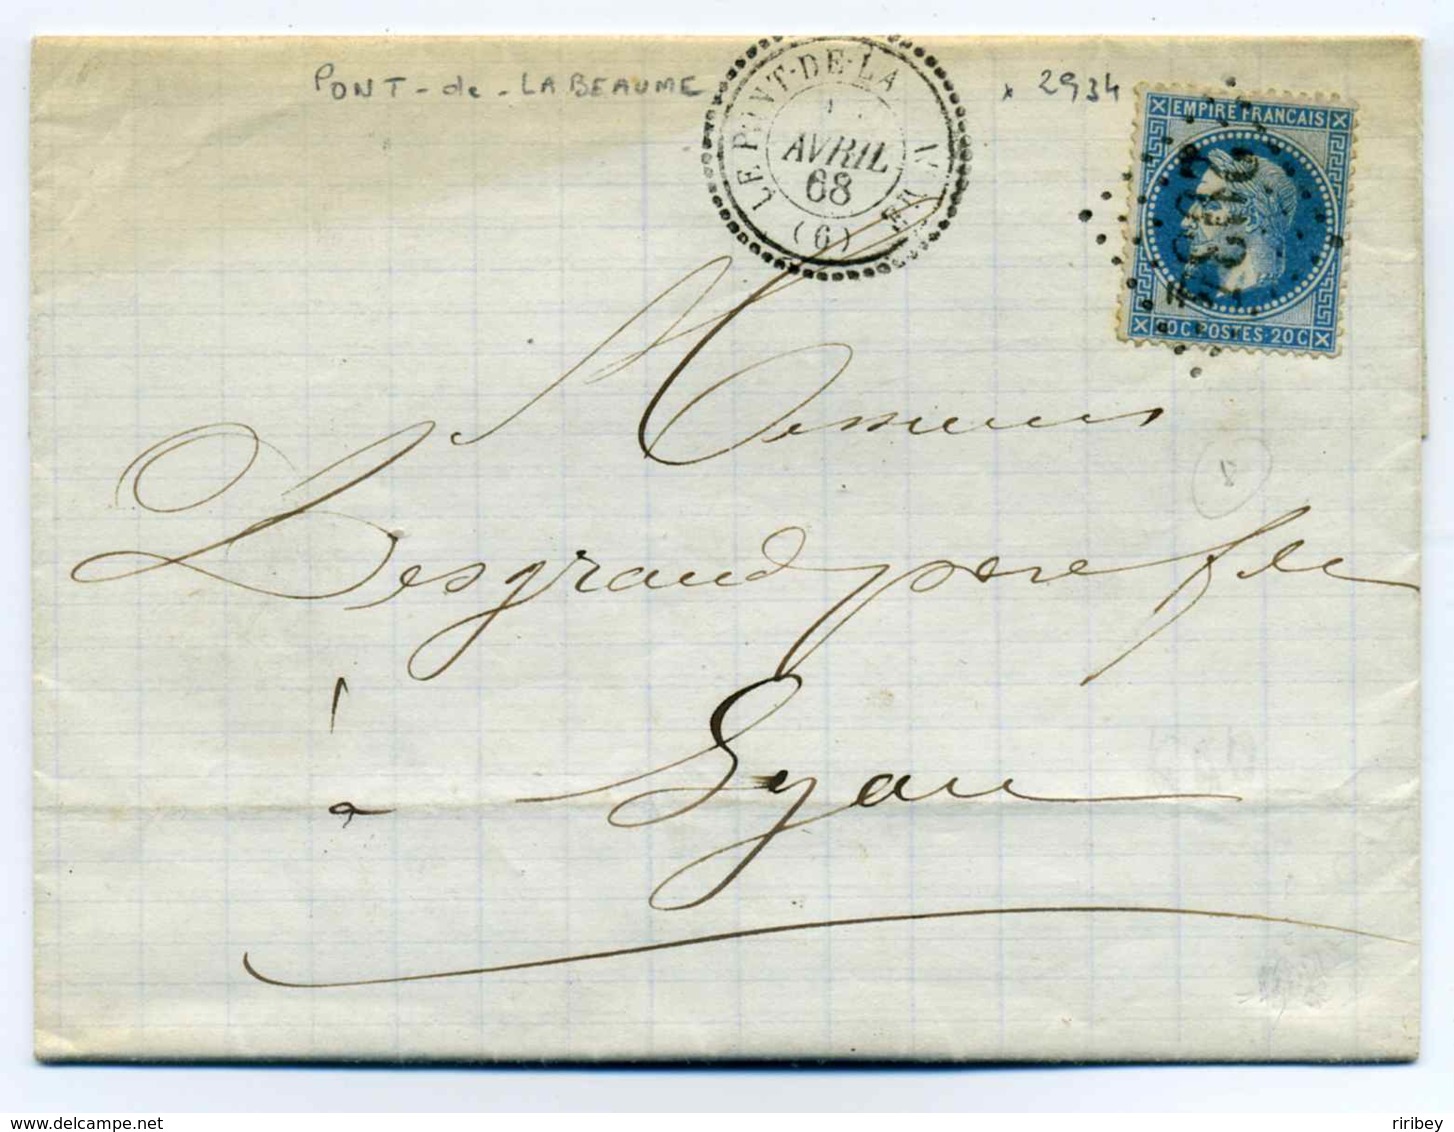 PONT-de-LABEAUME
x 2934
LE PONT-DE-LA
AVRIL
68
(6)
EMPIRE FRANCAIS
20C POSTES 20C
Messieurs
Desgrand pere & fils
à Lyon
www.delcampe.net
ribrey